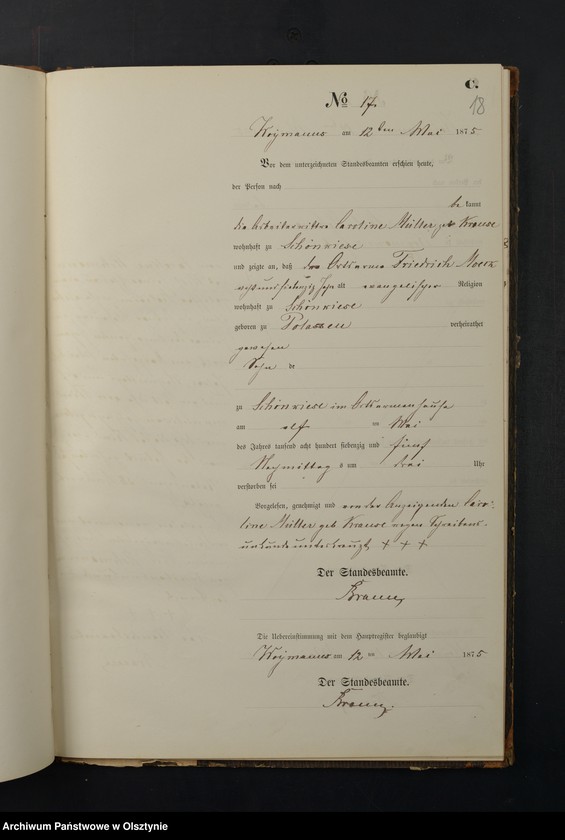 C.
18
No 17.
am 12ten Mai 1875
Vor dem unterzeichneten Standesbeamten erschien heute,
der Person nach
be kannt
die Arbeiterwittwe Caroline Müller geb Krause
wohnhaft zu Schönwiese
und zeigte an, daß der Ortsarme Friedrich
Jahr alt evangelischer Religion
wohnhaft zu Schönwiese
geboren zu verheirathet
gewesen
Sohn de
zu Schönwiese im Ortsarmenhause
am elf ten Mai
des Jahres tausend acht hundert siebenzig und fünf
Nachmittag s um drei Uhr
verstorben sei
Vorgelesen, genehmigt und von der Anzeigenden Caro-
line Müller geb Krause wegen Schreibens-
unkunde unterkreuzt + + +
Der Standesbeamte.
Die Uebereinstimmung mit dem Hauptregister beglaubigt
am 12 ten Mai 1875
Der Standesbeamte.
Archiwum Państwowe w Olsztynie